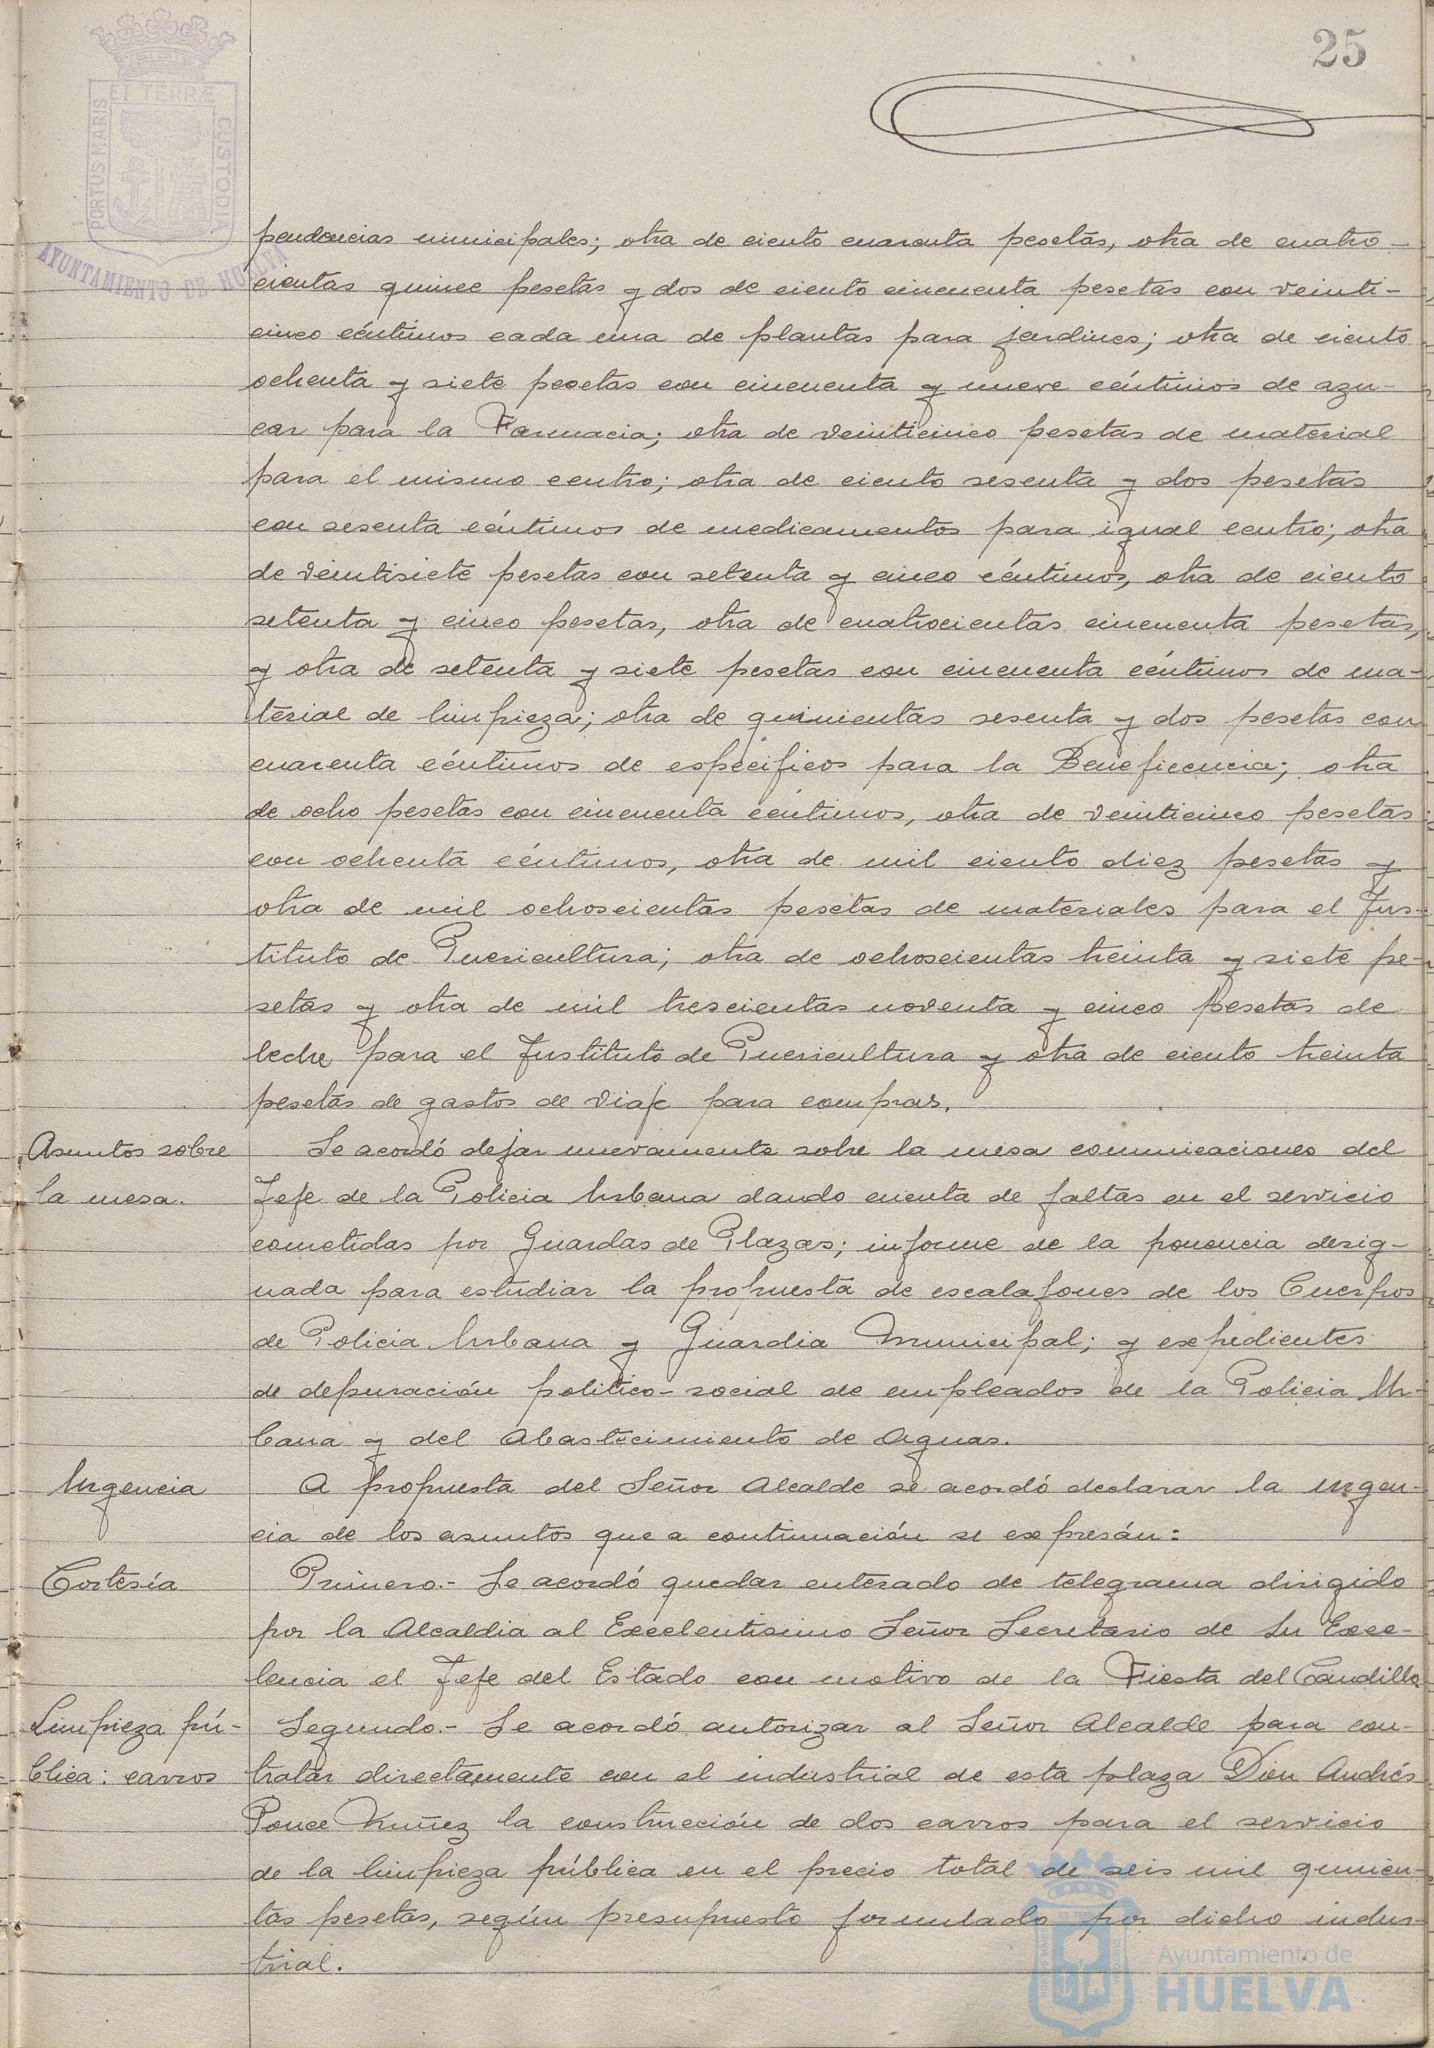 25
ET TERRÆ
PORTUS MARIS
CUSTODIA
AYUNTAMIENTO DE HUELVA
pendencias municipales; otra de ciento cuarenta pesetas, otra de cuatro-
cientas quince pesetas y dos de ciento cincuenta pesetas con veinti-
cinco céntimos cada una de plantas para jardines; otra de ciento
ochenta y siete pesetas con cincuenta y nueve céntimos de azu-
car para la Farmacia; otra de veinticinco pesetas de material
para el mismo centro; otra de ciento sesenta y dos pesetas
con sesenta céntimos de medicamentos para igual centro; otra
de veintisiete pesetas con setenta y cinco céntimos, otra de ciento
setenta y cinco pesetas, otra de cuatrocientas cincuenta pesetas,
y otra de setenta y siete pesetas con cincuenta céntimos de ma-
terial de limpieza; otra de quinientas sesenta y dos pesetas con
cuarenta céntimos de especificos para la Beneficencia; otra
de ocho pesetas con cincuenta céntimos, otra de veinticinco pesetas
con ochenta céntimos, otra de mil ciento diez pesetas y
otra de mil ochocientas pesetas de materiales para el Ins-
tituto de Puericultura; otra de ochocientas treinta y siete pe-
setas y otra de mil trescientas noventa y cinco pesetas de
leche para el Instituto de Puericultura y otra de ciento treinta
pesetas de gastos de viaje para compras.
Asuntos sobre
la mesa.
Se acordó dejar nuevamente sobre la mesa comunicaciones del
Jefe de la Policia Urbana dando cuenta de faltas en el servicio
cometidas por Guardas de Plazas; informe de la ponencia desig-
nada para estudiar la propuesta de escalafones de los Cuerpos
de Policia Urbana y Guardia Municipal; y expedientes
de depuración politico-social de empleados de la Policia Ur-
bana y del Abastecimiento de Aguas.
Urgencia
A propuesta del Señor Alcalde se acordó declarar la urgen-
cia de los asuntos que a continuación se expresán:
Cortesía
Primero.- Se acordó quedar enterado de telegrama dirigido
por la Alcaldia al Excelentisimo Señor Secretario de Su Exce-
lencia el Jefe del Estado con motivo de la Fiesta del Caudillo
Limpieza pú-
blica: carros
Segundo.- Se acordó autorizar al Señor Alcalde para con-
tratar directamente con el industrial de esta plaza Don Andrés
Ponce Nuñez la construcción de dos carros para el servicio
de la limpieza pública en el precio total de seis mil quinien-
tas pesetas, según presupuesto formulado por dicho indus-
trial.
Ayuntamiento de
HUELVA